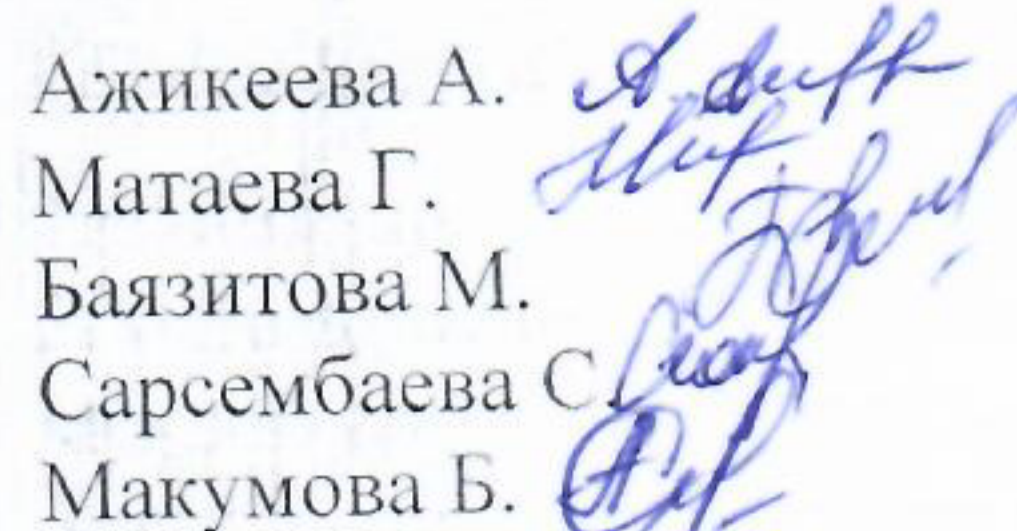 Ажикеева А.
Матаева Г.
Баязитова М.
Сарсембаева С.
Макумова Б.